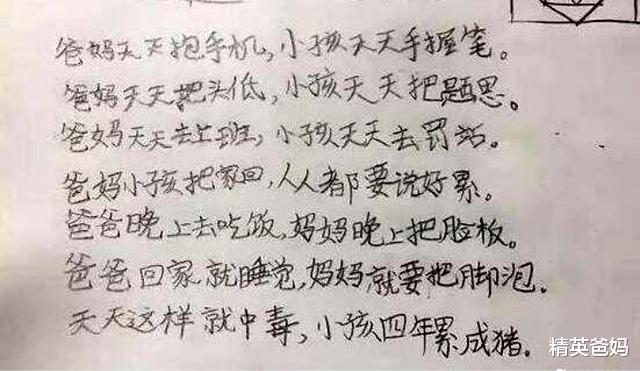 爸妈天天抱手机，小孩天天手握笔。
爸妈天天把头低，小孩天天把题思。
爸妈天天去上班，小孩天天去罚站。
爸妈小孩把家回，人人都要说好累。
爸爸晚上去吃饭，妈妈晚上把脸板。
爸爸回家就睡觉，妈妈就要把脚泡.
天天这样就中毒，小孩四年累成猪。
精英爸妈